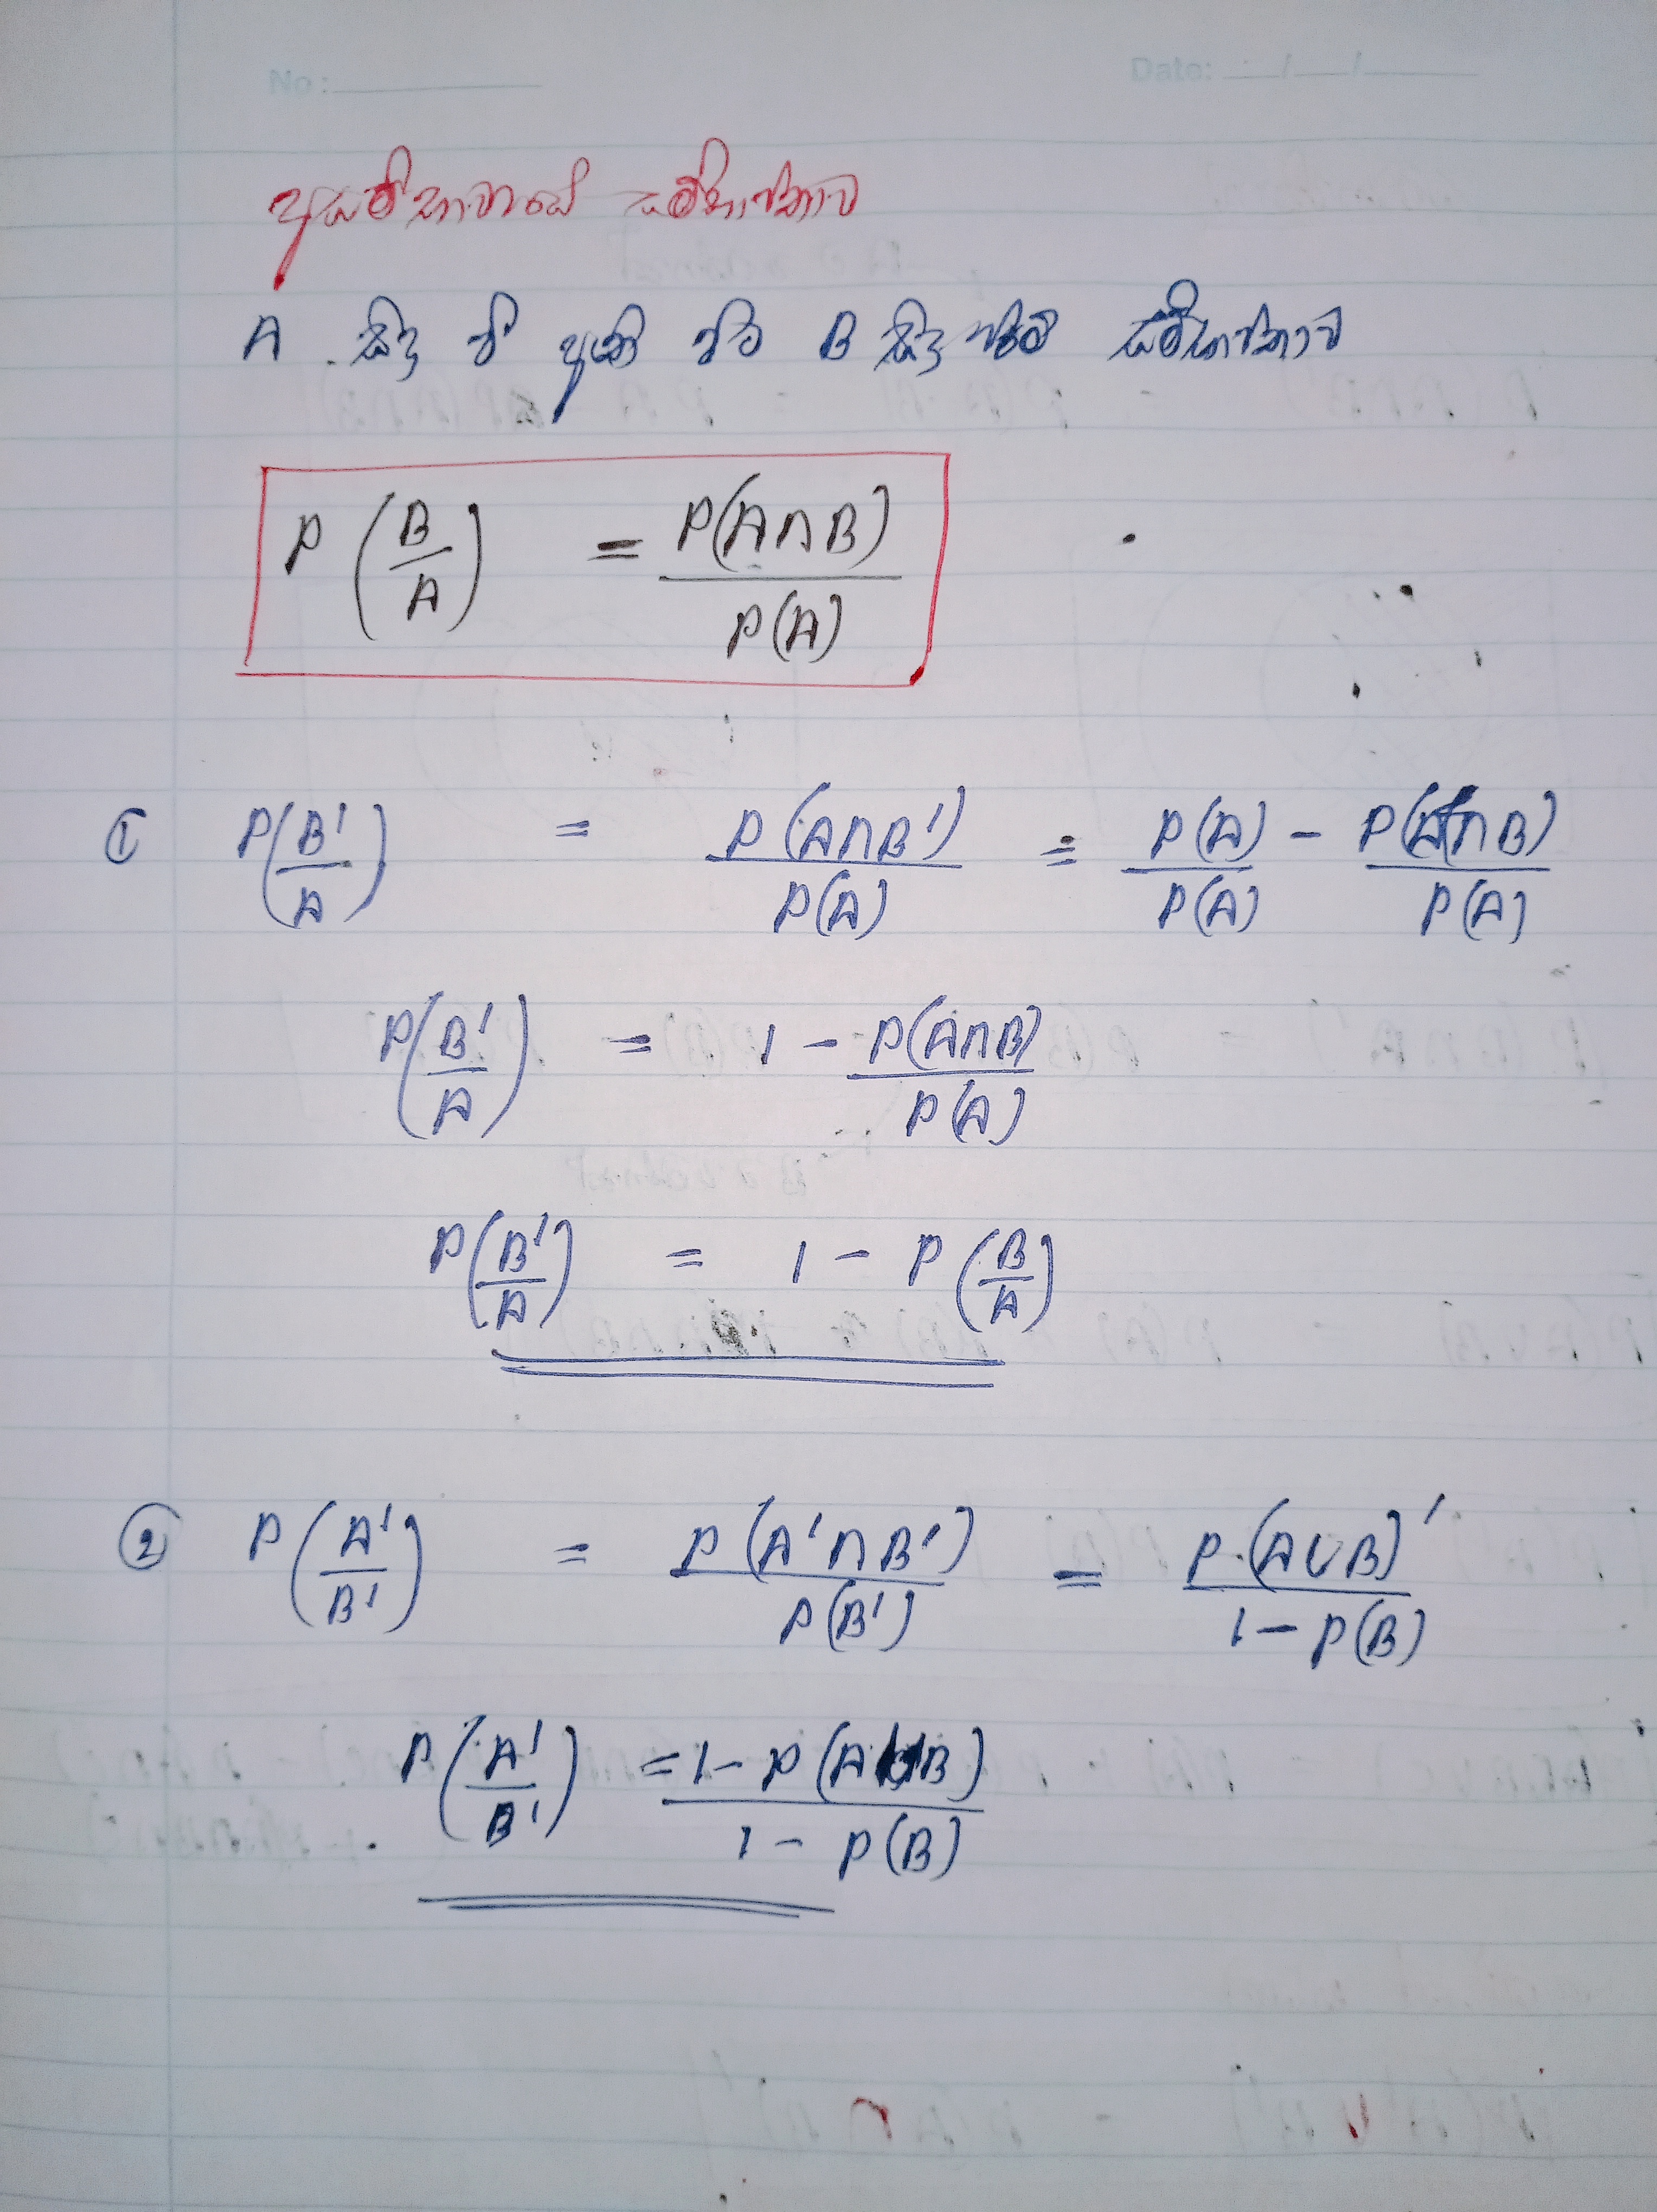 No :
Date: / /
සම්භාවිතාව
A සිදු වී ඇති විට B සිදු වීමේ සම්භාවිතාව
P(B/A) = P(A∩B)/P(A)
① P(B'/A) = P(A∩B')/P(A) = P(A)/P(A) - P(A∩B)/P(A)
P(B'/A) = 1 - P(A∩B)/P(A)
P(B'/A) = 1 - P(B/A)
② P(A'/B') = P(A'∩B')/P(B') = P(A∪B)'/1-P(B)
P(A'/B') = 1-P(A∪B)/1-P(B)